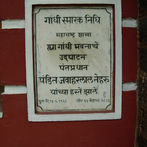 गांधी स्मारक निधि
महाराष्ट्र शाखा
ह्या गांधी भवनाचे
उद्घाटन
पंतप्रधान
पंडित जवाहरलाल नेहरू
यांच्या हस्ते झाले